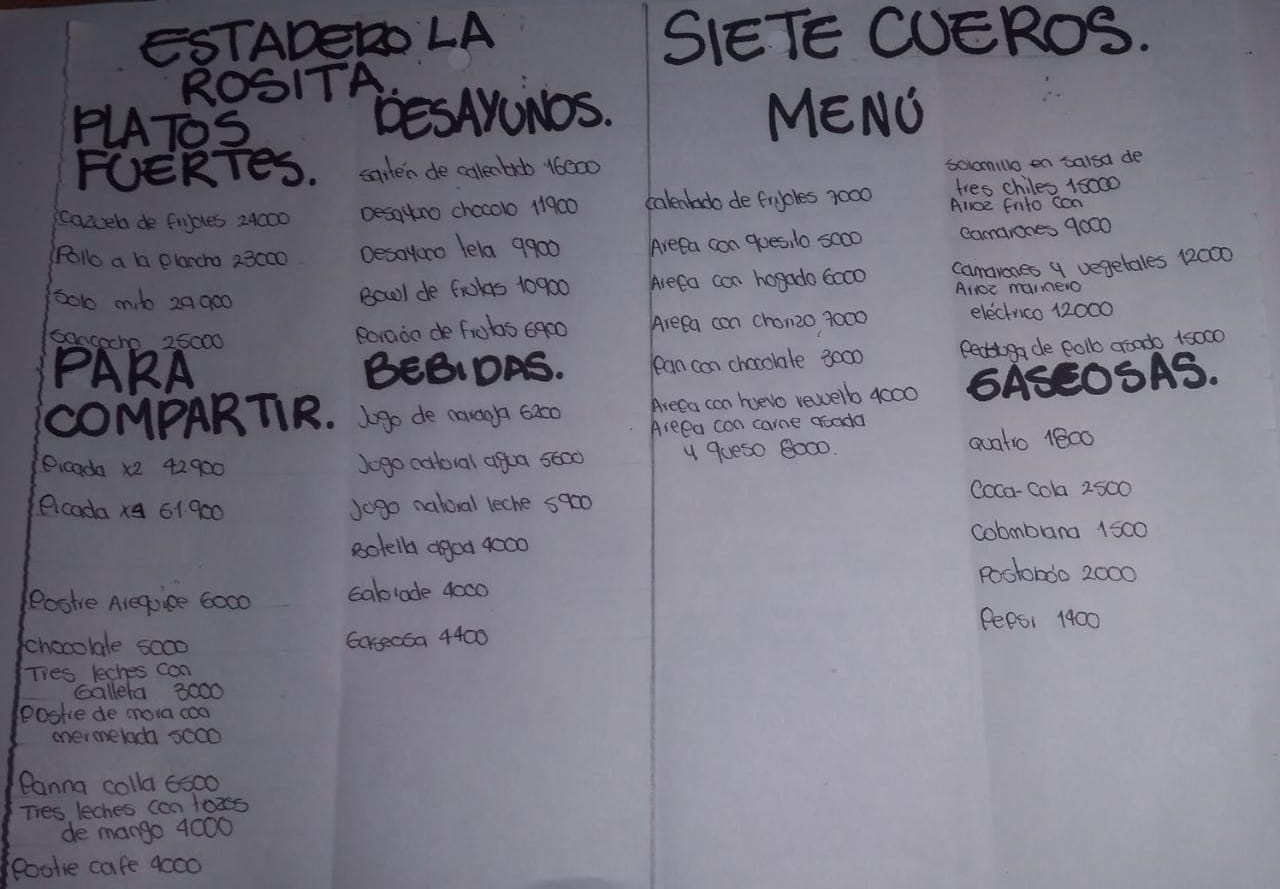 ESTADERO LA
ROSITA.
PLATOS
FUERTES.
Cazuela de frijoles 24000
Pollo a la plancha 23000
Solomito 29900
Sancocho 25000
PARA
COMPARTIR.
Picada x2 42900
Picada x4 61.900
Postre Arequipe 6000
Chocolate 5000
Tres leches con
Galleta 3000
Postre de mora con
mermelada 5000
Panna cotta 6500
Tres leches con trozos
de mango 4000
Postre cafe 4000
DESAYUNOS.
Sartén de calentado 16000
Desayuno chocolo 11900
Desayuno lela 9900
Bowl de frutas 10900
Porción de frutas 6900
BEBIDAS.
Jugo de naranja 6200
Jugo natural agua 5600
Jugo natural leche 5900
Botella agua 4000
Gatorade 4000
Gaseosa 4400
SIETE CUEROS.
MENÚ
Calentado de frijoles 7000
Arepa con quesito 5000
Arepa con hogado 6000
Arepa con chorizo 7000
Pan con chocolate 3000
Arepa con huevo revuelto 4000
Arepa con carne asada
y queso 8000.
Solomillo en salsa de
tres chiles 15000
Arroz frito con
Camarones 9000
Camarones y vegetales 12000
Arroz marinero
eléctrico 12000
Pechuga de pollo asado 15000
GASEOSAS.
Quatro 1800
Coca-Cola 2500
Colombiana 1500
Postobón 2000
Pepsi 1400